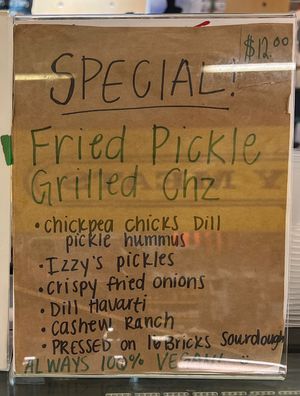 $12.00
SPECIAL!
Fried Pickle
Grilled Chz
• chickpea chicks Dill
pickle hummus
• Izzy's pickles
• crispy fried onions
• Dill Havarti
• cashew Ranch
• PRESSED on 16 Bricks Sourdough
ALWAYS 100% VEGAN!